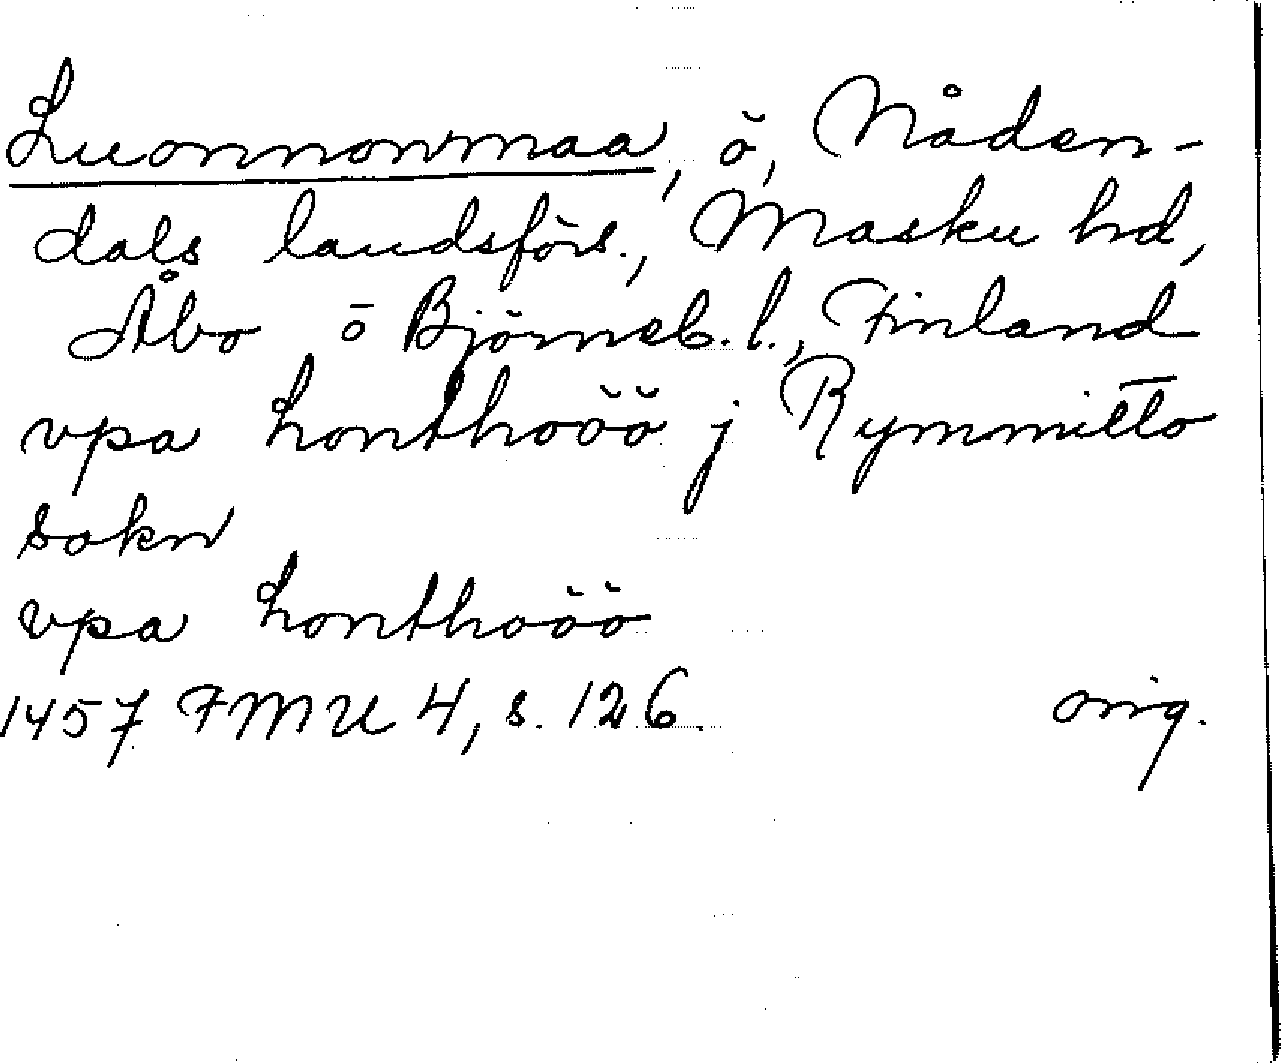 Luonnonmaa, ö, Nåden-
dals landsförs., Masku hd,
Åbo o Björneb. l., Finland
vpa Lonthoöö j Rymmitto
sokn
vpa Lonthoöö
1457 FMU 4, s. 126. orig.